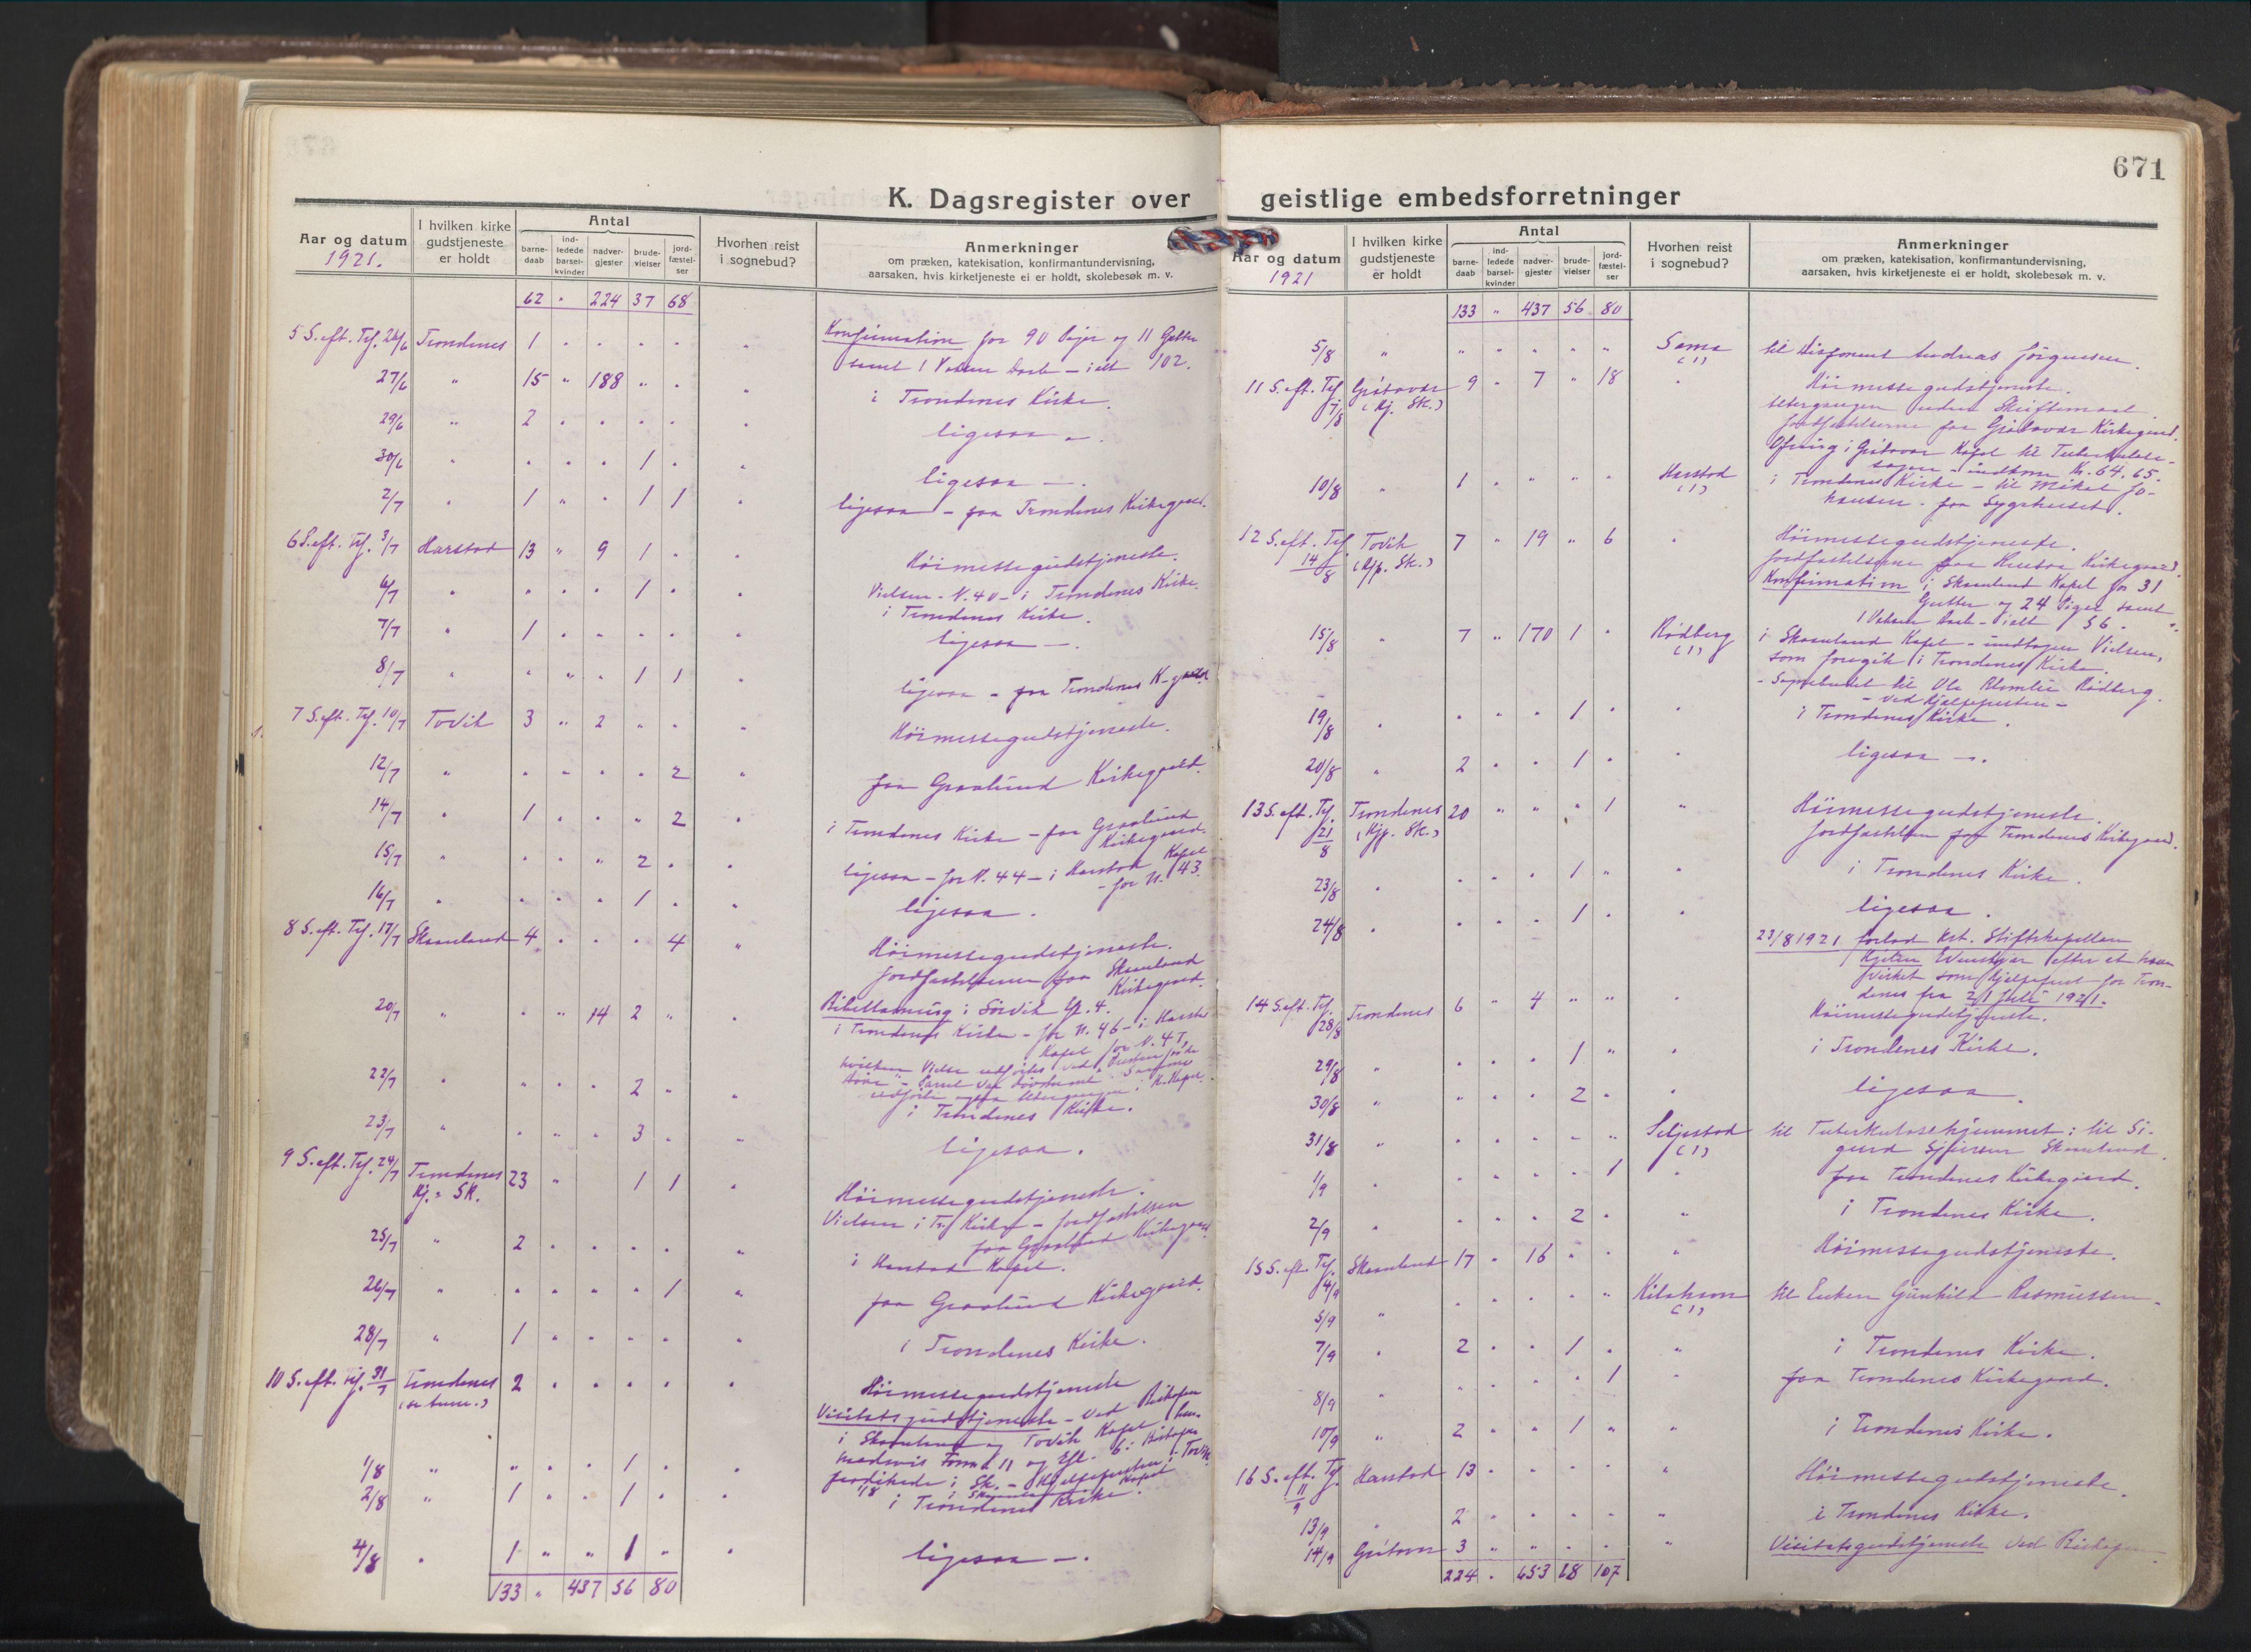 671
K. Dagsregister over
geistlige embedsforretninger
Aar og datum
1921.
I hvilken kirke
gudstjeneste
er holdt
Antal
barne-
daab
ind-
ledede
barsel-
kvinder
nadver-
gjester
brude-
vielser
jord-
fæstel-
ser
Hvorhen reist
i sognebud?
Anmerkninger
om præken, katekisation, konfirmantundervisning,
aarsaken, hvis kirketjeneste ei er holdt, skolebesøk m. v.
62 " 224 37 68
5 S. eft. Trf. 26/6 Trondenes 1 " " " " " Konfirmation for 90 Piger og 11 Gutter
samt 1 Voksen Daab - ialt 102.
27/6 " 15 " 188 " " " i Trondenes Kirke.
29/6 " 2 " " " " " ligesaa -.
30/6 " " " " 1 " " ligesaa -.
2/7 " 1 " " 1 1 " ligesaa - paa Trondenes Kirkegaard.
6 S. eft. Trf. 3/7 Harstad 13 " 9 1 " " Höimessegudstjeneste.
6/7 " " " " 1 " " Vielsen - N. 40 - i Trondenes Kirke.
7/7 " 1 " " " " " i Trondenes Kirke.
ligesaa -.
8/7 " " " " 1 1 " ligesaa - paa Trondenes K-gaard
7 S. eft. Trf. 10/7 Tovik 3 " 2 " " " Höimessegudstjeneste.
12/7 " " " " " 2 " paa Graalund Kirkegaard.
14/7 " 1 " " " 2 " i Trondenes Kirke - paa Graalund
Kirkegaard.
15/7 " " " " 2 " " ligesaa - for N. 44 - i Harstad Kapel
- for N. 43.
16/7 " " " " 1 " " ligesaa.
8 S. eft. Trf. 17/7 Skaanland 4 " " " 4 " Höimessegudstjeneste.
Jordfæstelserne paa Skaanland
Kirkegaard.
20/7 " " " 14 2 " " Bibellæsning i Sörvik Ef. 4.
i Trondenes Kirke - for N. 46 - i Harstad
Kapel for N. 47,
22/7 " " " " 2 " " i Trondenes Kirke.
23/7 " " " " 3 " " ligesaa.
9 S. eft. Trf. 24/7 Trondenes 23 " 1 1 " Höimessegudstjeneste.
Kj. = SK.
Vielsen i Tr. Kirke - Jordfæstelsen
paa Graalund Kirkegaard
25/7 " 2 " " " " " i Harstad Kapel.
26/7 " " " " " 1 " paa Graalund Kirkegaard.
28/7 " 1 " " " " " i Trondenes Kirke.
10 S. eft. Trf. 31/7 Trondenes 2 " " " " " Höimessegudstjeneste
Visitatsgudstjeneste - ved Biskopen
i Skaanland og Tovik Kapel
1/8 " " " " 1 " "
2/8 " 1 " " 1 " " i Trondenes Kirke.
4/8 " 1 " " 1 " " ligesaa -.
133 " 437 56 80
Aar og datum
1921
I hvilken kirke
gudstjeneste
er holdt
Antal
barne-
daab
ind-
ledede
barsel-
kvinder
nadver-
gjester
brude-
vielser
jord-
fæstel-
ser
Hvorhen reist
i sognebud?
Anmerkninger
om præken, katekisation, konfirmantundervisning,
aarsaken, hvis kirketjeneste ei er holdt, skolebesøk m. v.
133 " 437 56 80
5/8 " " " " " " Sama til Disponent Andreas Jörgensen.
(1)
11 S. eft. Trf. 7/8 Grötavær 9 " 7 " 18 " Höimessegudstjeneste.
(Kj. Sk.)
Altergangen uden Skriftemaal.
Jordfæstelserne paa Grötavær Kirkegaard.
Ofring i Grötavær Kapel til Tuberkulose-
sagen - indkom Kr. 64.65.
10/8 " 1 " " " " Harstad i Trondenes Kirke - til Mikal Jo-
(1) hansen - paa Sygehuset.
12 S. eft. Trf. 14/8 Tovik 7 " 19 " 6 " Höimessegudstjeneste.
(Kjp. Sk.)
Jordfæstelserne paa Kirkegaard.
Konfirmation i Skaanland Kapel for 31
Gutter og 24 Piger samt
1 Voksen Daab - ialt 56.
15/8 " 7 " 170 1 " Rödberg i Skaanland Kapel - undtagen Vielsen,
(1) som foregik i Trondenes Kirke.
- Sognebudet til Ole Blomlie Rödberg.
- ved Hjælpepresten -
19/8 " " " " 1 " " i Trondenes Kirke.
20/8 " 2 " " 1 " " ligesaa -.
13 S. eft. Trf. 21/8 Trondenes 20 " " " 1 " Höimessegudstjeneste.
(Kjp. Sk.)
Jordfæstelsen paa Trondenes Kirkegaard.
23/8 " " " " 1 " " i Trondenes Kirke.
24/8 " " " " 1 " " ligesaa.
23/8 1921 forlod Kst. Stiftskapellan
efter at have
virket som Hjelpeprest for Tron-
denes fra 21 Juli 1921.
14 S. eft. Trf. 28/8 Trondenes 6 " 4 " " " Höimessegudstjeneste.
29/8 " " " " 1 " " i Trondenes Kirke.
30/8 " " " " 2 " " ligesaa.
31/8 " " " " " " Seljestad til Tuberkulosehjemmet: til Si-
(1) gurd Skaanland.
1/9 " " " " " 1 " paa Trondenes Kirkegaard.
2/9 " " " " 2 " " i Trondenes Kirke.
15 S. eft. Trf. 4/9 Skaanland 17 " 16 " " " Höimessegudstjeneste.
5/9 " " " " " " Kilahom til Enken Gunhild Rasmussen.
(1)
7/9 " 2 " " 1 " " i Trondenes Kirke.
8/9 " " " " " 1 " paa Trondenes Kirkegaard.
10/9 " 2 " " 1 " " i Trondenes Kirke.
16 S. eft. Trf. 11/9 Harstad 13 " " " " " Höimessegudstjeneste.
13/9 " 2 " " " " " i Trondenes Kirke.
14/9 Grötavær 3 " " " " " Visitatsgudstjeneste ved Biskopen
224 " 653 68 107